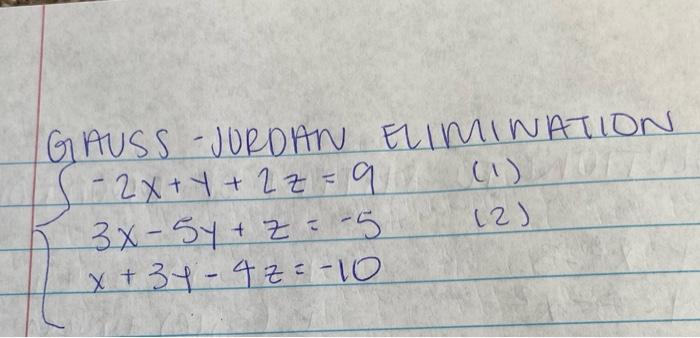 GAUSS-JORDAN ELIMINATION
-2x + y + 2z = 9 (1)
3x - 5y + z = -5 (2)
x + 3y - 4z = -10